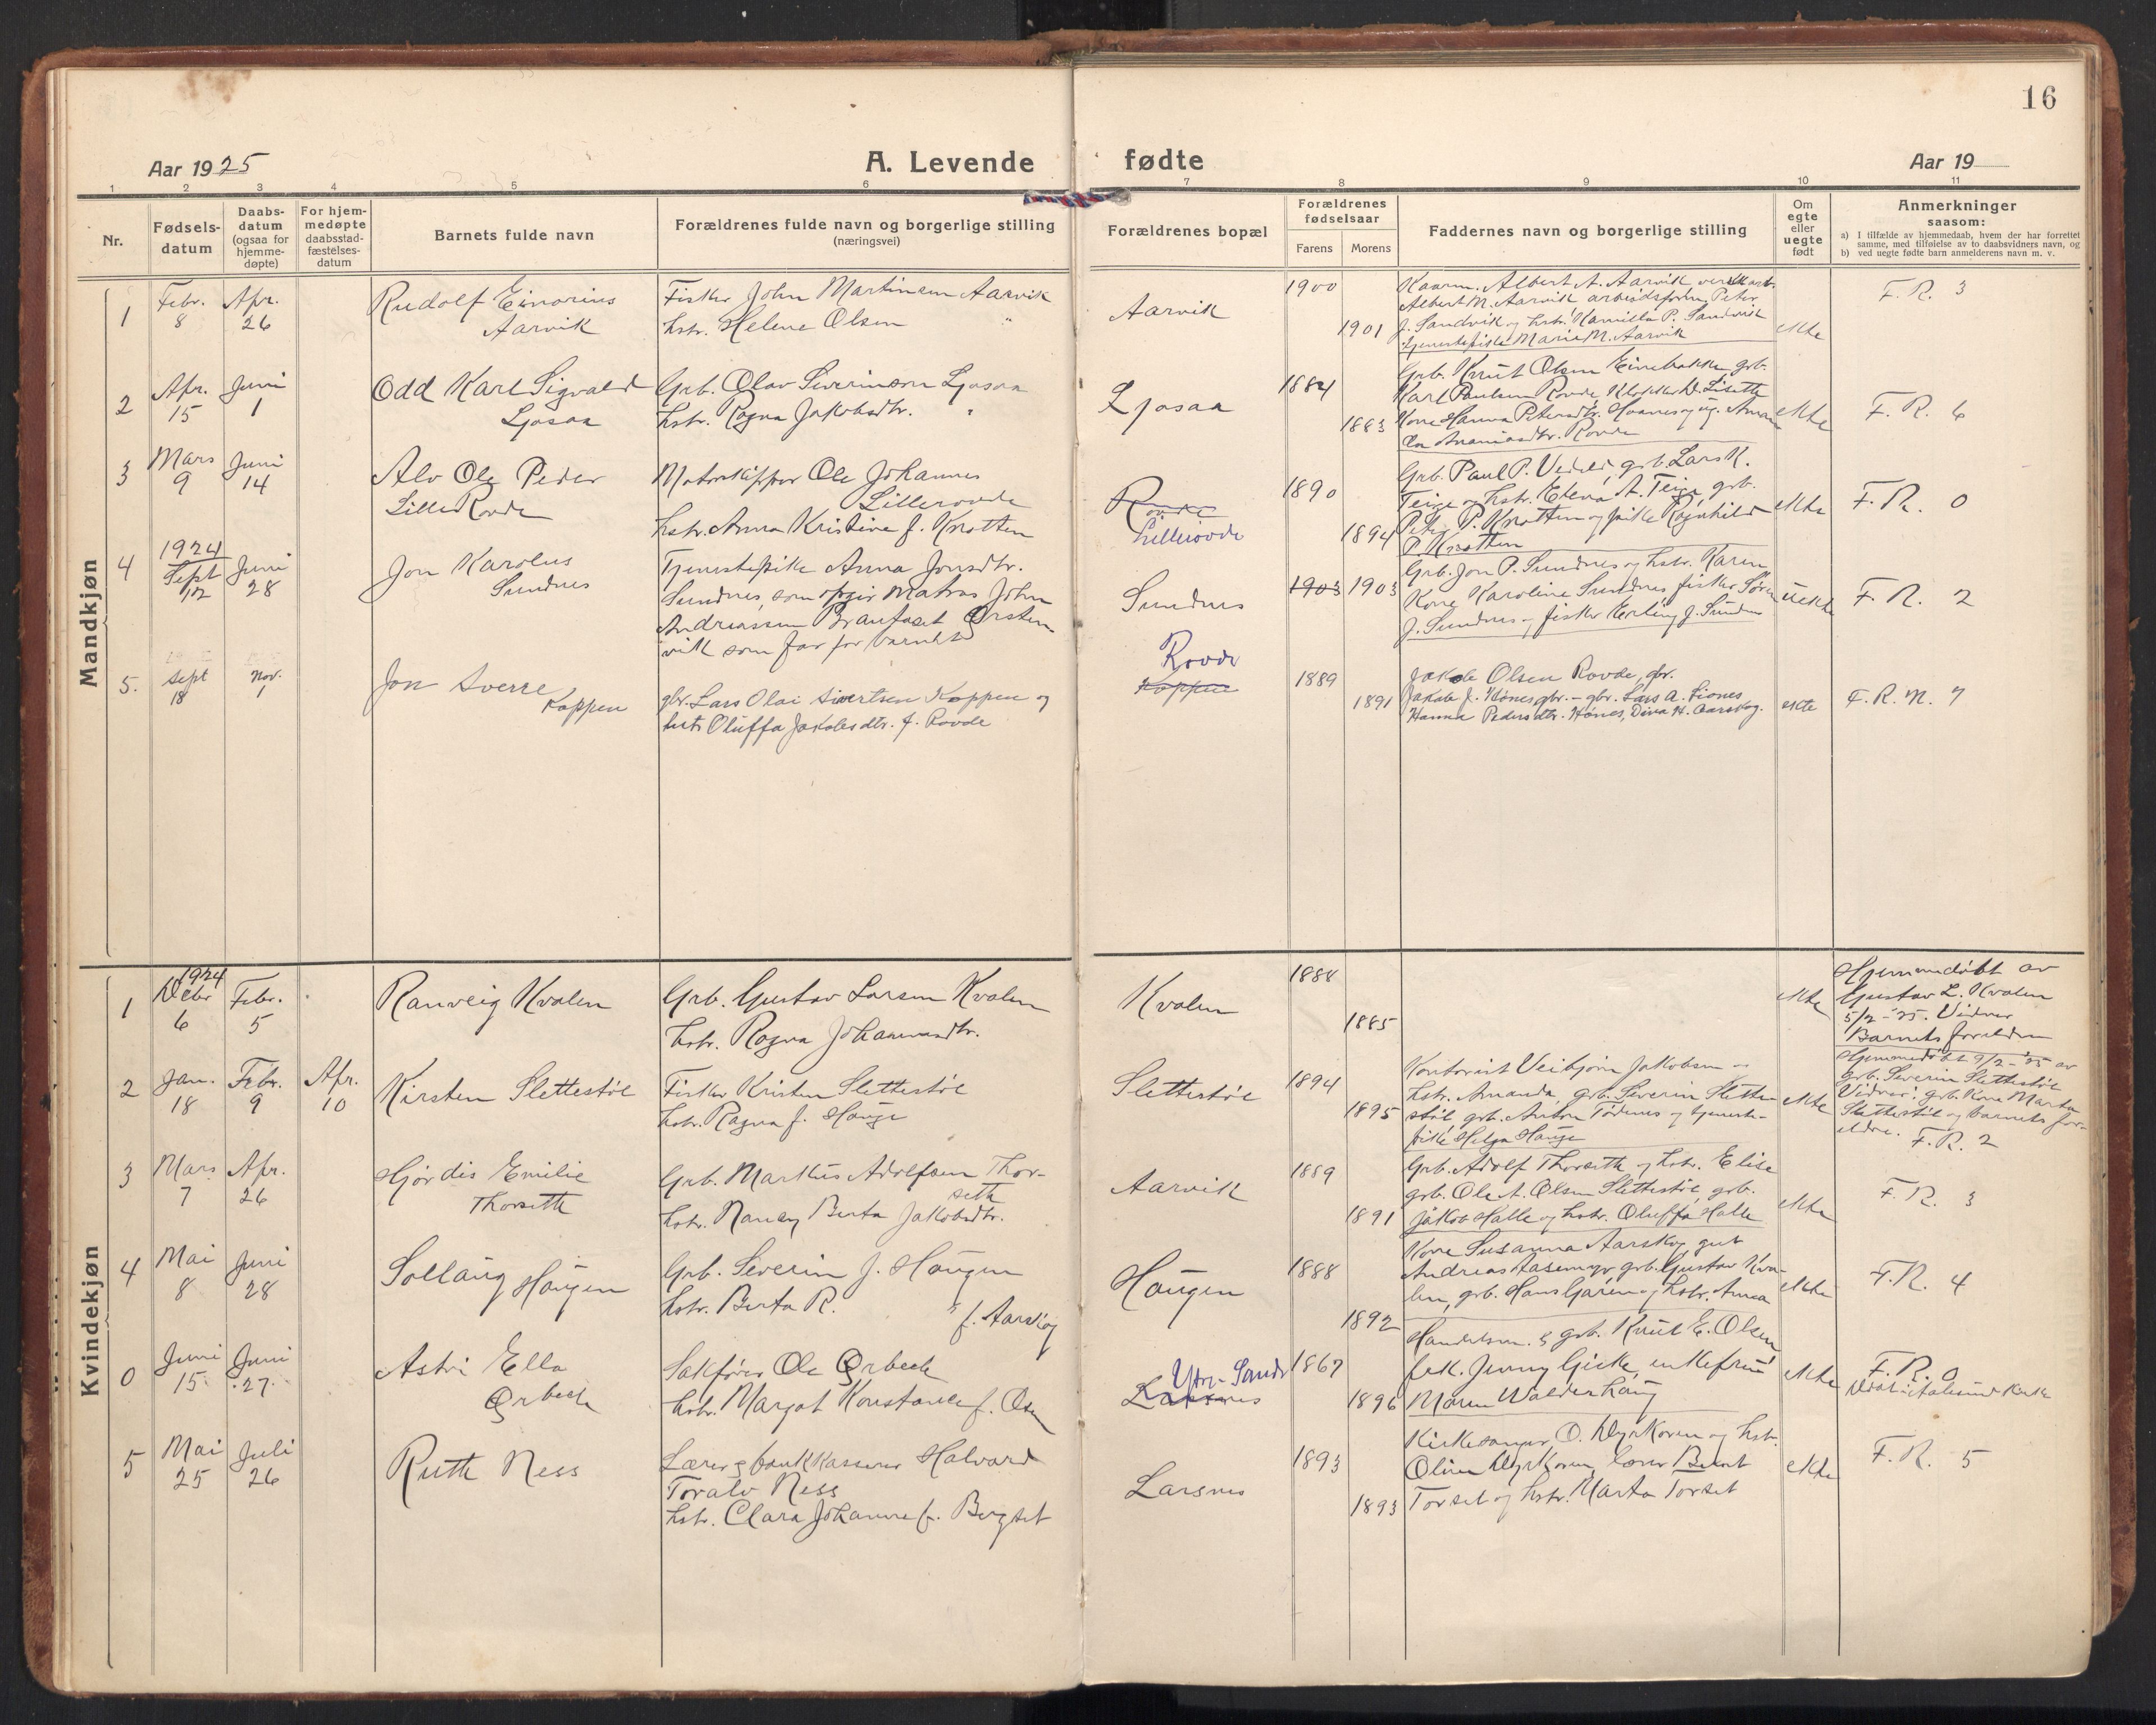 16
Aar 1925
A. Levende fødte
Aar 19
1 2 3 4 5 6 7 8 9 10 11
Nr.
Fødsels-
datum
Daabs-
datum
(ogsaa for
hjemme-
døpte)
For hjem-
medøpte
daabsstad-
fæstelses-
datum
Barnets fulde navn
Forældrenes fulde navn og borgerlige stilling
(næringsvei)
Forældrenes bopæl
Forældrenes
fødselsaar
Farens
Morens
Faddernes navn og borgerlige stilling
Om
egte
eller
uegte
født
Anmerkninger
saasom:
a) I tilfælde av hjemmedaab, hvem der har forrettet
samme, med tilføielse av to daabsvidners navn, og
b) ved uegte fødte barn anmelderens navn m. v.
Mandkjøn
1
Febr.
8
Apr.
26
Rudolf Einarius
Aarvik
Fisker John Martinsen Aarvik
hstr. Helene Olsen "
Aarvik
1900
1901
Kaarm. Albert A. Aarvik
Albert M. Aarvik arbeidsform. Peter
J. Sandvik og hstr. Kamilla P. Sandvik
tjenestepike Marie M. Aarvik
ekte
F. R. 3
2
Apr.
15
Juni
1
Odd Karl Sigvald
Ljosaa
Grb. Olav Severinson Ljosaa
hstr. Ragna Jakobsdtr. "
Ljosaa
1884
1883
Grb. Knut Olsen Einebakke grb.
Karl Paulsen Rovde, Klokker D. Lisette
Kone Hanna Petersdtr. Haanes og ug.
Ananiasdtr. Rovde
ekte
F. R. 6
3
Mars
9
Juni
14
Alv Ole Peder
LilleRovde
Motorskipper Ole Johannes
Lillerovde
hstr. Anna Kristine f. Knotten
Rovde
Lillerovde
1890
1894
Grb. Paul P. Vedeld, grb. Lars K.
Teige og hstr. Elena A. Teige, grb.
Peter P. Knotten og pike Ragnhild
P. Knotten
ekte
F. R. 0
4
1924
Sept
12
Juni
28
Jon Karolus
Sundnes
Tjenestepike Anna Jonsdtr.
Sundnes, som opgir Matros John
Andreassen Brautaset Ørsten-
vik som far for barnet
Sundnes
1903 1903
Grb. Jon P. Sundnes og hstr. Karen
Kone Karoline Sundnes, fisker Søren
J. Sundnes og fisker Erling J. Sundnes
uekte
F. R. 2
5.
Sept
18
Nov.
1
Jon Sverre
Koppen
gbr. Lars Olai Sivertsen Koppen og
hustr. Oluffa Jakobsdtr. f. Rovde
Rovde
Koppen
1889
1891
Jakob Olsen Rovde, gbr.
Jakob J. Hønes gbr. - gbr. Lars A. Fiones
Hanna Pedersdtr. Hønes, Dina H. Aarskog.
ekte
F. R. N. 7
Kvindekjøn
1
1924
Debr
6
Febr.
5
Ranveig Kvalen
Grb. Gustav Larsen Kvalen
hstr. Ragna Johannesdtr.
Kvalen
1888
1885
ekte
Hjemmedøbt av
Gustav L. Kvalen
5/2 - 25. Vidner
Barnets foreldre
2
Jan.
18
Febr.
9
Apr.
10
Kirsten Slettestøl
Fisker Kristen Slettestøl
hstr. Ragna f. Hauge
Slettestøl
1894
1895
Kontorist Veibjørn Jakobsen og
hstr. Amanda, grb. Severin Slette-
støl, grb. Anton Tødenes og tjeneste-
pike Helga Hauge
ekte
Hjemmedøbt 9/2 - 25 av
grb. Severin Slettestøl
Vidner: grb. Kone Marta
Slettestøl og barnets for-
eldre. F. R. 2
3
Mars
7
Apr.
26
Hjørdis Emilie
Thorseth
Grb. Markus Adolfsen Thor-
seth
hstr. Nancy Berta Jakobsdtr.
Aarvik
1889
1891
Grb. Adolf Thorseth og hstr. Elise
grb. Ole A. Olsen Slettestøl, grb.
Jakob Halle og hstr. Oluffa Halle
ekte
F. R. 3
4
Mai
8
Juni
28
Sollaug Haugen
Grb. Severin J. Haugen
hstr. Berta R. " f. Aarskog
Haugen
1888
1892
Kone Susanna Aarskog, gut
Andreas Aasemyr, grb. Gustav Kva-
len, grb. Hans Garen og hstr. Anna
ekte
F. R. 4
0
Juni
15
Juni
27
Astri Ella
Ørbeck
Sakfører Ole Ørbeck
hstr. Margot Konstanse f. Olsen
Ytre-Sande
Larsnes
1867
1896
Handelsm. & grb. Knut E. Olsen
frk. Jenny Giske, enkefrue
Maren Walderhaug
ekte
F. R. 0
Døbt i Aalesund Kirke
5
Mai
25
Juli
26
Ruth Ness
Lærer & bankkasserer Halvard
Toralv Ness
hstr. Clara Johanne f. Bergset
Larsnes
1893
1893
Kirkesanger O. Dyrkoren og hstr.
Oline Dyrkoren, lærer Bernt
Torset og hstr. Marta Torset
ekte
F. R. 5